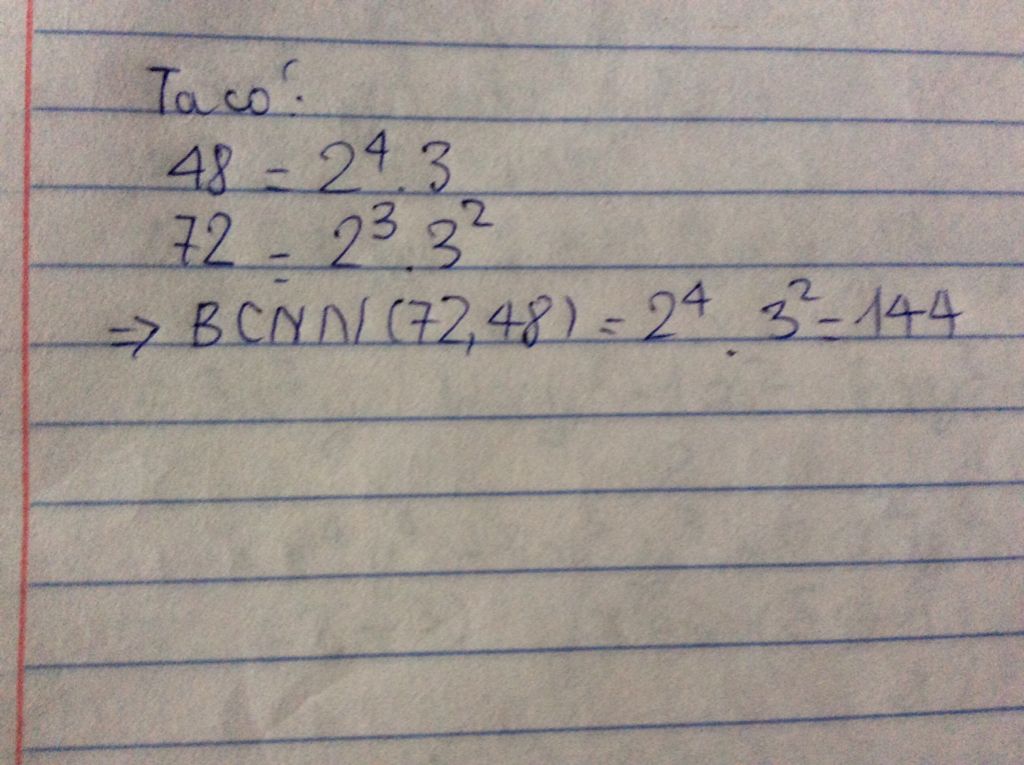 Ta có:
48 = 2⁴.3
72 = 2³.3²
=> BCNN(72,48) = 2⁴.3² = 144